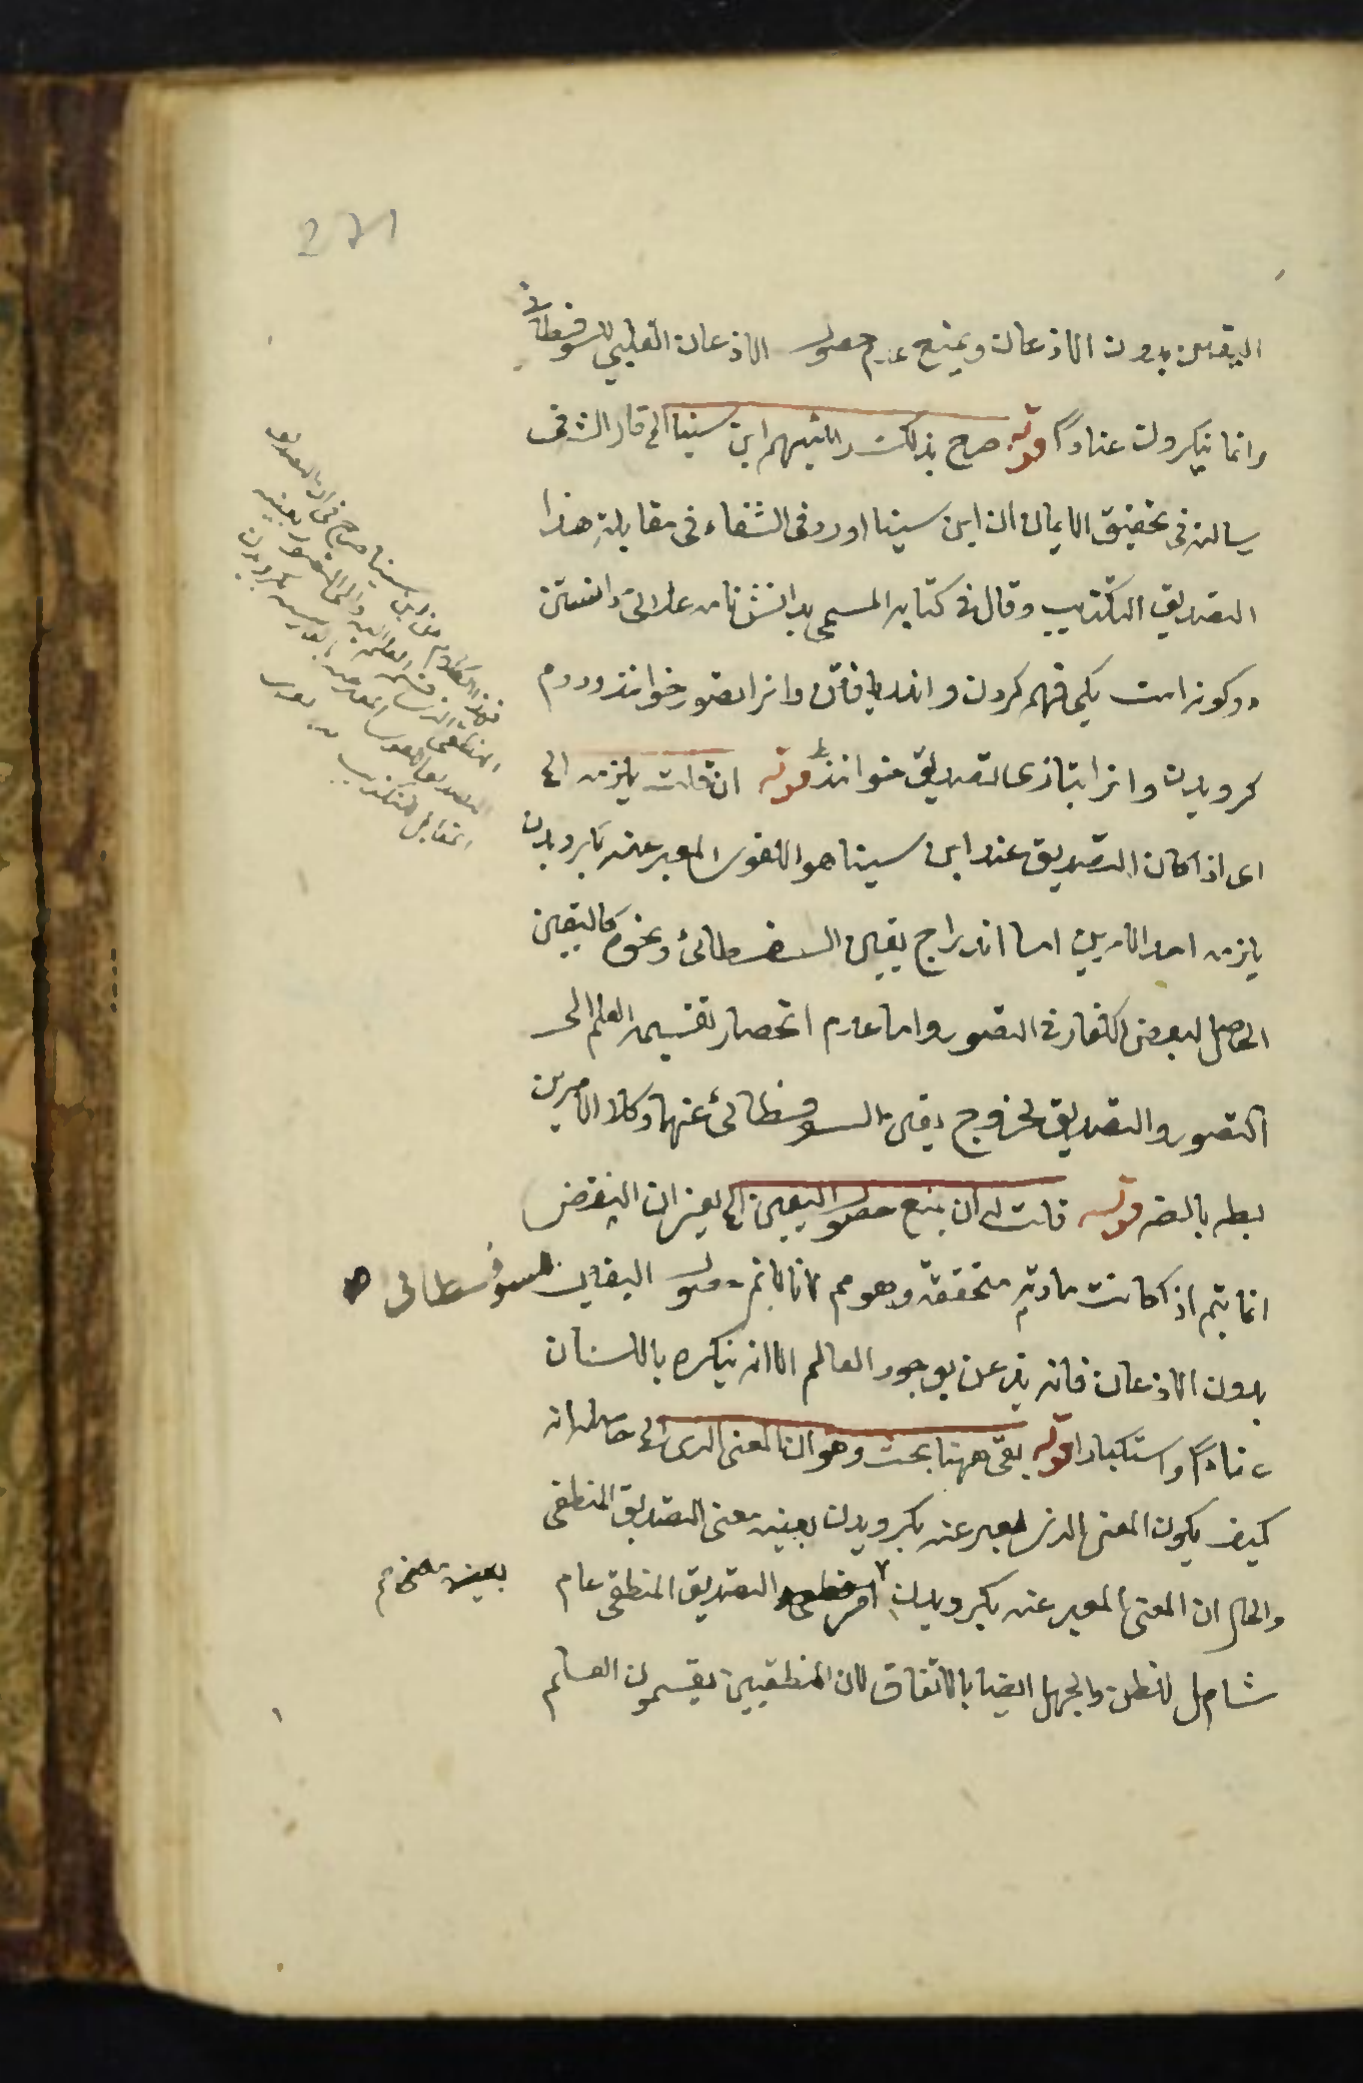 271
اليقين بدون الاذعان ويمنع عدم حصول الاذعان القلبي للسوفسطائية
وانما ينكرون عنادا قوله صرح بذلك رئيسهم ابن سينا الخ قال الشريف
رسالته في تحقيق الايمان ان ابن سينا اورد في الشفاء في مقابلة هذا
التصديق التكذيب وقال في كتابه المسمى بدانش نامه علائى دانستن
دوكونه است يكى فهم كردن واندريافتن وانرا تصور خوانند ودوم
كرويدن وانرا بتازى تصديق خوانند قوله ان قلت يلزمه الخ
اى اذا كان التصديق عند ابن سينا هو اللغوى المعبر عنه بكرويدن
يلزمه احد الامرين اما اندراج يقين السفسطائى ونحوه كاليقين
الحاصل لبعض الكفار في التصور واما عدم انحصار تقسيمه العلم الى
التصور والتصديق لخروج يقين السوفسطائى عنهما وكلا الامرين
بط بالضر قوله قلت له ان يمنع حصول اليقين الخ يعنى ان النقض
انما يتم اذا كانت مادته متحققة وهو مم لانا لانم حصول اليقين للسوفسطائى
بدون الاذعان فانه يذعن بوجود العالم الا انه ينكره باللسان
عنادا واستكبارا قوله بقى ههنا بحث وهو ان المعنى الذى الخ حاصله انه
كيف يكون المعنى الذى يعبر عنه بكرويدن بعينه معنى التصديق المنطقى
والحال ان المعنى المعبر عنه بكرويدن امر قطعى التصديق المنطقى عام
شامل للظن والجهل ايضا بالاتفاق لان المنطقيين يقسمون العلم